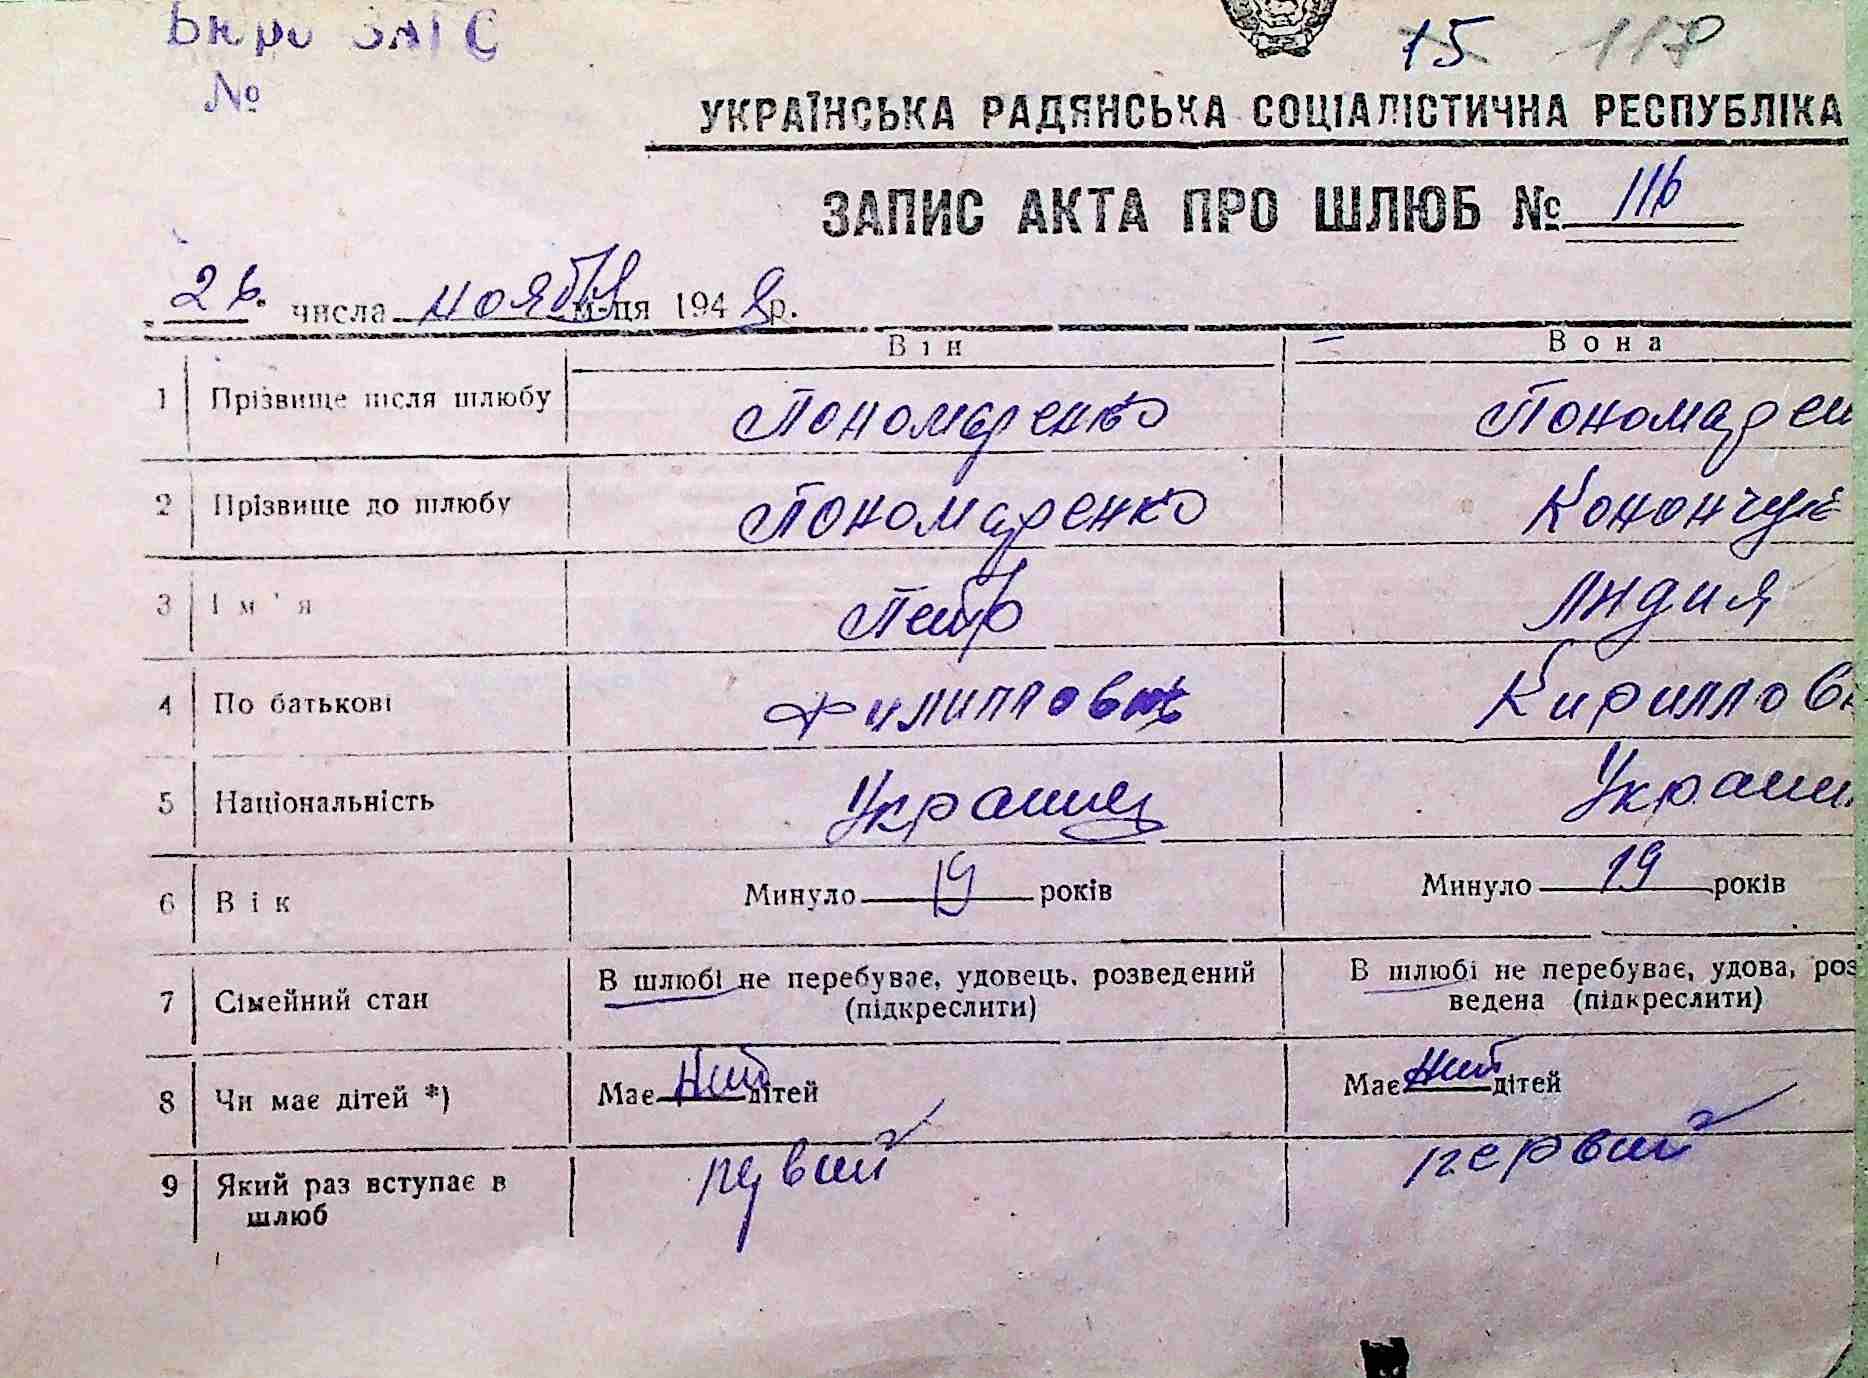 Бюро ЗАГС
№
15 117
УКРАЇНСЬКА РАДЯНСЬКА СОЦІАЛІСТИЧНА РЕСПУБЛІКА
ЗАПИС АКТА ПРО ШЛЮБ № 116
26. числа ноября м-ця 1948 р.
Він Вона
1 Прізвище після шлюбу Пономаренко Пономарен
2 Прізвище до шлюбу Пономаренко Конончук
3 Ім'я Петр Лидия
4 По батькові Филиппович Кирилловн
5 Національність Украинец Украин
6 Вік Минуло 19 років Минуло 19 років
7 Сімейний стан В шлюбі не перебуває, удовець, розведений (підкреслити) В шлюбі не перебуває, удова, роз
ведена (підкреслити)
8 Чи має дітей *) Має нет дітей Має нет дітей
9 Який раз вступає в первый первый
шлюб